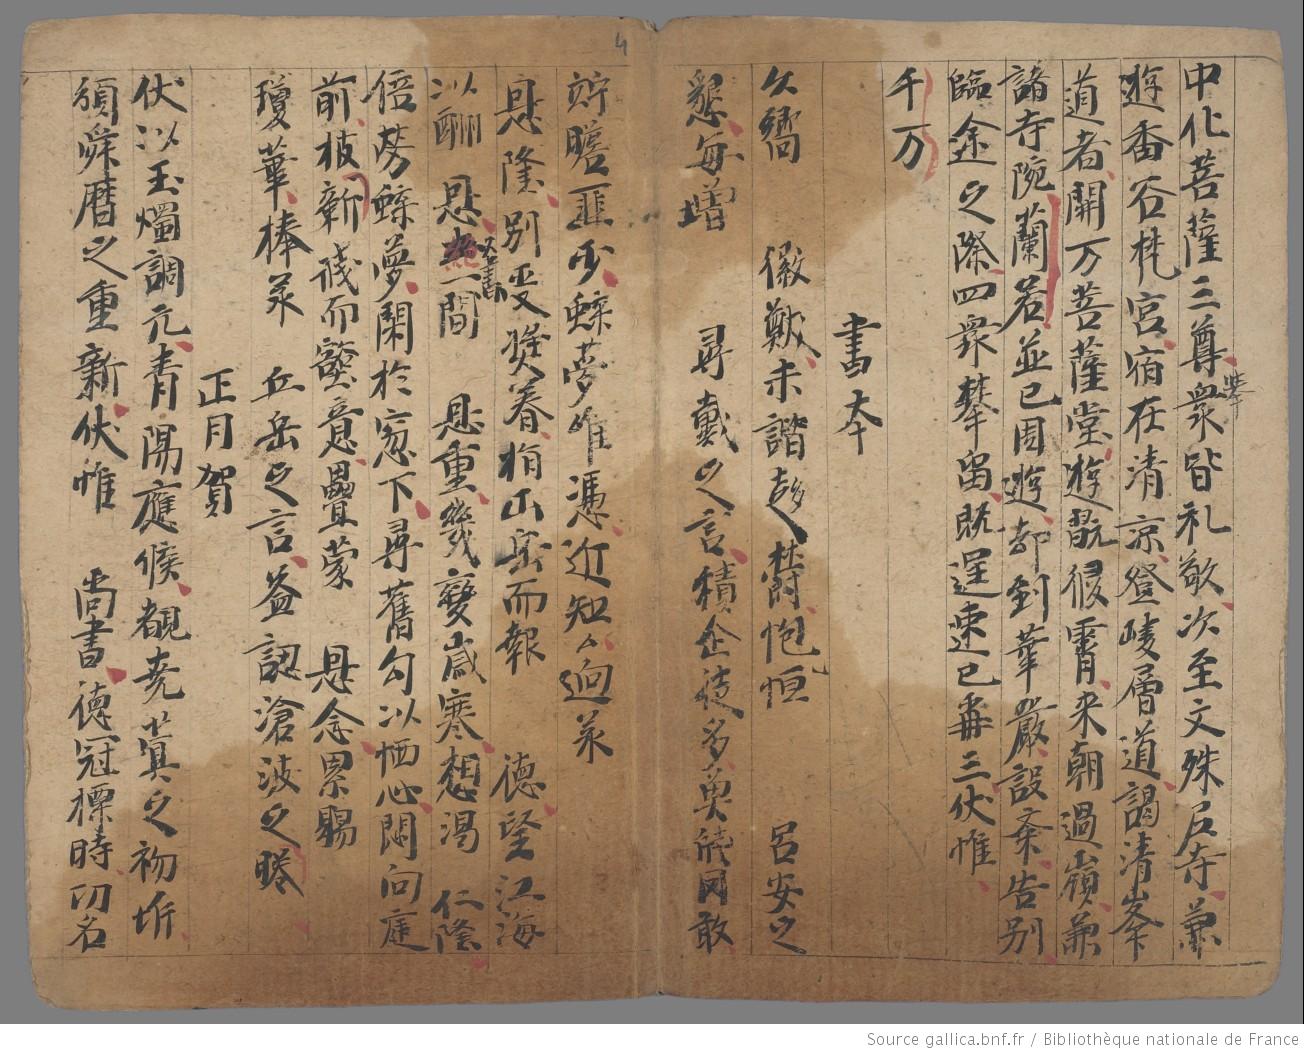 中化菩薩三尊衆皆礼敬次至文殊尼寺兼
遊香谷梵宮宿在清凉登崚層道謁清峯
道者開万菩薩堂遊翫侵霄来朝過嶺兼
諸寺院蘭若並已周遊却到華嚴設斋告别
臨途之際四衆攀留既遅速已再三伏惟
千万
書本
久嚮 徽猷未諧趍 鬱怉恒 呂安之
懇每增 尋戴之言積企徒多奠 罔敢
貯瞻匪少蘇夢唯憑近知人迴羕
息隆别受奬眷指山岳而報 德望江海
以酬 恩書絶一間 恩重幾變歲寒想渴 仁隆
倍勞蘇夢閑於窓下尋舊勾以恓心閑向庭
前枝新 而 意疊蒙 恩念累賜
瓊華捧羕 丘岳之言益認滄波之勝
正月賀 尚書
伏以玉燭調元青陽應候覩尭蓂之初坼
頒舜曆之重新伏惟 尚書德冠標時功名
4
Source gallica.bnf.fr / Bibliothèque nationale de France